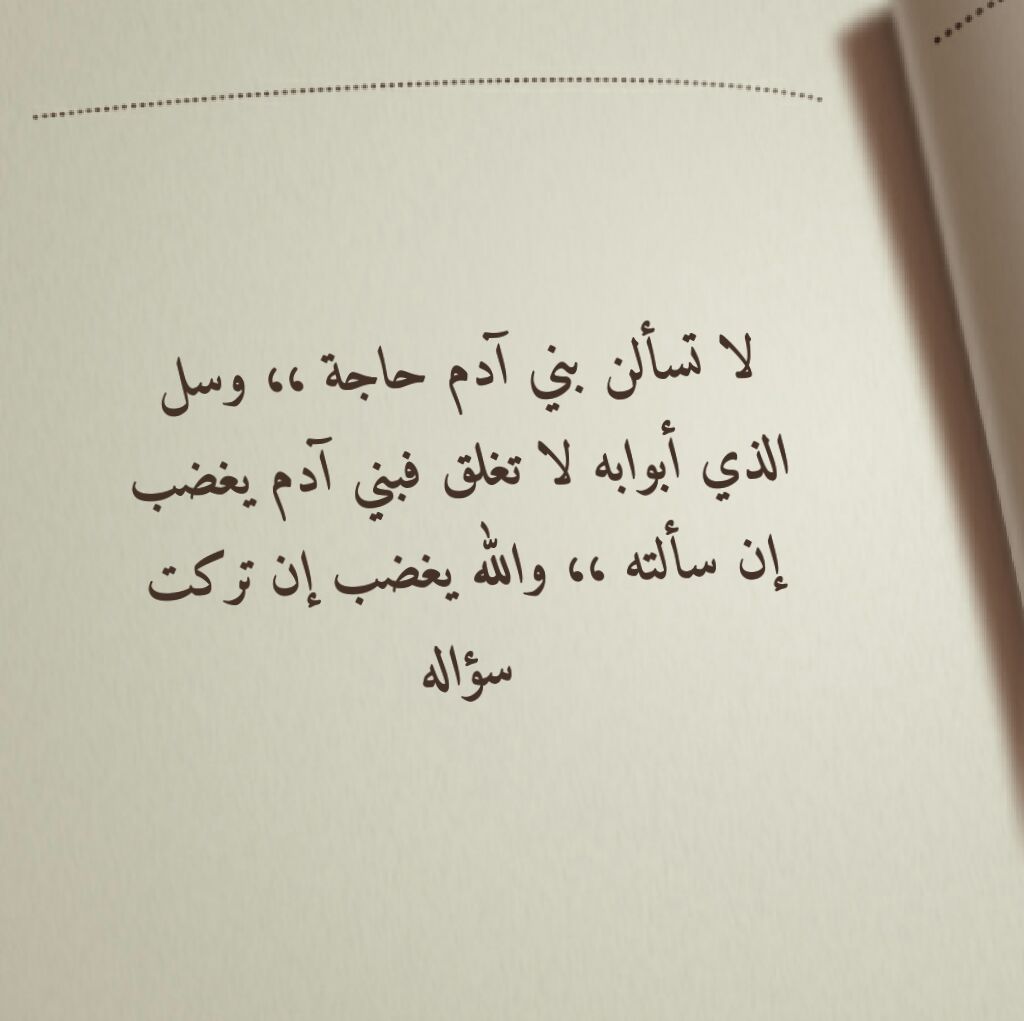 لا تسألن بني آدم حاجة ،، وسل
الذي أبوابه لا تغلق فبني آدم يغضب
إن سألته ،، والله يغضب إن تركت
سؤاله